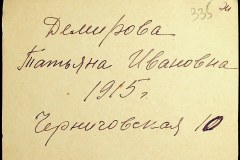 335
Демирова
Татьяна Ивановна
1915 г.
Черниговская 10